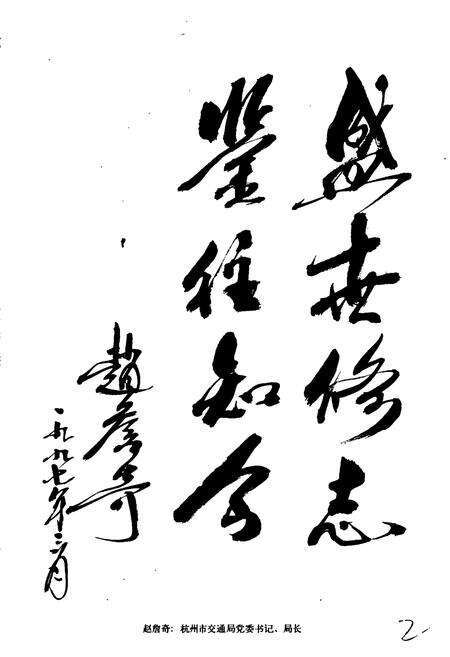 盛世修志
鉴往知今
趙詹奇
一九九七年三月
赵詹奇：杭州市交通局党委书记、局长
2